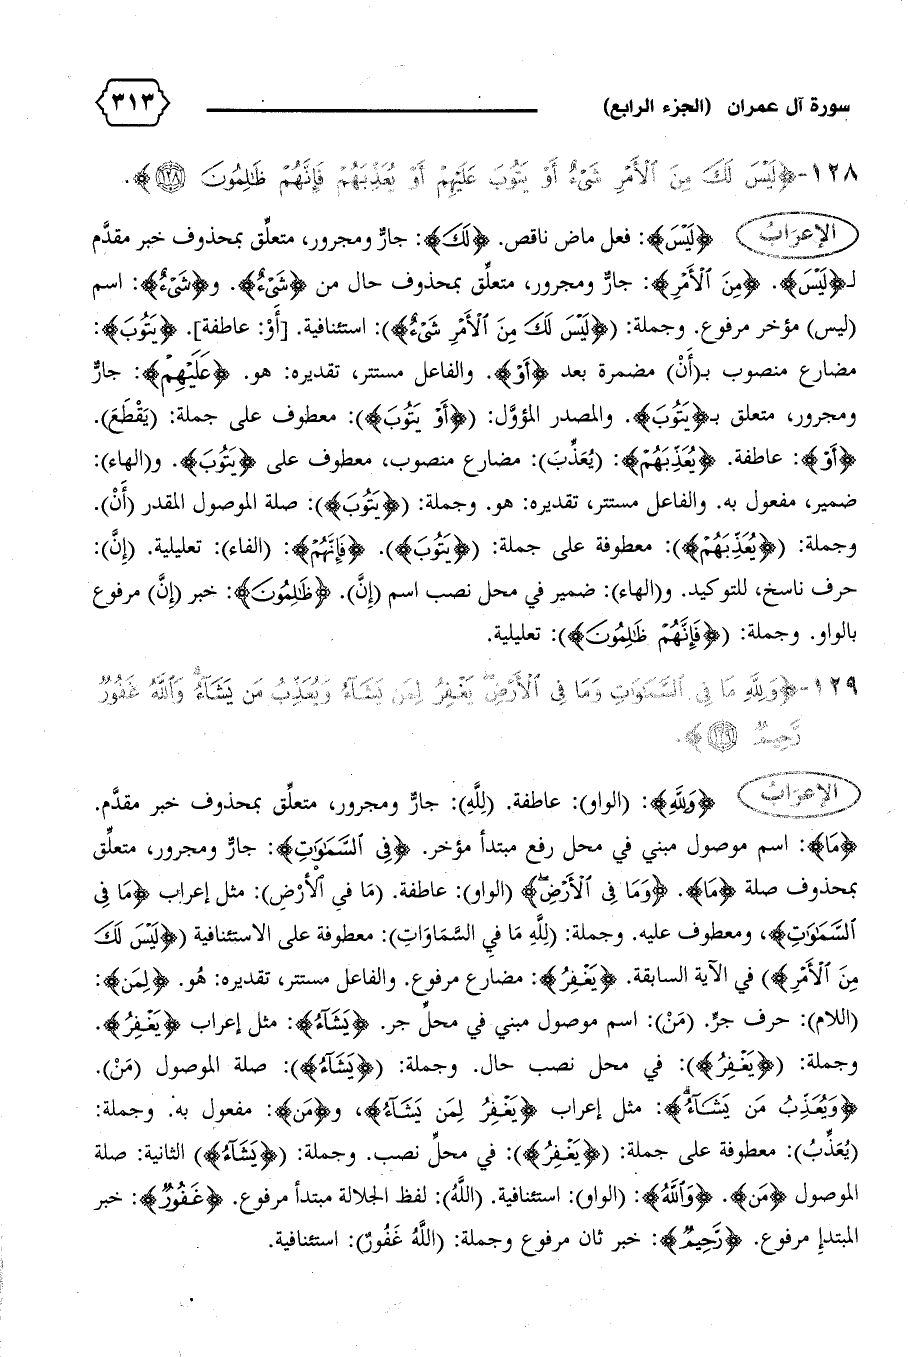 سورة آل عمران (الجزء الرابع) ٣١٣
١٢٨-﴿لَيْسَ لَكَ مِنَ ٱلْأَمْرِ شَىْءٌ أَوْ يَتُوبَ عَلَيْهِمْ أَوْ يُعَذِّبَهُمْ فَإِنَّهُمْ ظَٰلِمُونَ ١٢٨﴾.
الإعرَابُ ﴿لَيْسَ﴾: فعل ماض ناقص. ﴿لَكَ﴾: جارٌّ ومجرور، متعلِّق بمحذوف خبر مقدَّم
لـ﴿لَيْسَ﴾. ﴿مِنَ ٱلْأَمْرِ﴾: جارٌّ ومجرور، متعلِّق بمحذوف حال من ﴿شَىْءٌ﴾. و﴿شَىْءٌ﴾: اسم
(ليس) مؤخر مرفوع. وجملة: (﴿لَيْسَ لَكَ مِنَ ٱلْأَمْرِ شَىْءٌ﴾): استئنافية. [أَوْ: عاطفة]. ﴿يَتُوبَ﴾:
مضارع منصوب بـ(أَنْ) مضمرة بعد ﴿أَوْ﴾. والفاعل مستتر، تقديره: هو. ﴿عَلَيْهِمْ﴾: جارٌّ
ومجرور، متعلق بـ﴿يَتُوبَ﴾. والمصدر المؤوَّل: (﴿أَوْ يَتُوبَ﴾): معطوف على جملة: (يَقْطَعَ).
﴿أَوْ﴾: عاطفة. ﴿يُعَذِّبَهُمْ﴾: (يُعَذِّبَ): مضارع منصوب، معطوف على ﴿يَتُوبَ﴾. و(الهاء):
ضمير، مفعول به. والفاعل مستتر، تقديره: هو. وجملة: (﴿يَتُوبَ﴾): صلة الموصول المقدر (أَنْ).
وجملة: (﴿يُعَذِّبَهُمْ﴾): معطوفة على جملة: (﴿يَتُوبَ﴾). ﴿فَإِنَّهُمْ﴾: (الفاء): تعليلية. (إِنَّ):
حرف ناسخ، للتوكيد. و(الهاء): ضمير في محل نصب اسم (إِنَّ). ﴿ظَٰلِمُونَ﴾: خبر (إِنَّ) مرفوع
بالواو. وجملة: (﴿فَإِنَّهُمْ ظَٰلِمُونَ﴾): تعليلية.
١٢٩-﴿وَلِلَّهِ مَا فِى ٱلسَّمَٰوَٰتِ وَمَا فِى ٱلْأَرْضِ ۚ يَغْفِرُ لِمَن يَشَآءُ وَيُعَذِّبُ مَن يَشَآءُ ۚ وَٱللَّهُ غَفُورٌ
رَّحِيمٌ ١٢٩﴾.
الإعرَابُ ﴿وَلِلَّهِ﴾: (الواو): عاطفة. (لِلَّهِ): جارٌّ ومجرور، متعلِّق بمحذوف خبر مقدَّم.
﴿مَا﴾: اسم موصول مبني في محل رفع مبتدأ مؤخر. ﴿فِى ٱلسَّمَٰوَٰتِ﴾: جارٌّ ومجرور، متعلِّق
بمحذوف صلة ﴿مَا﴾. ﴿وَمَا فِى ٱلْأَرْضِ ۚ﴾ (الواو): عاطفة. (مَا في الأَرْضِ): مثل إعراب ﴿مَا فِى
ٱلسَّمَٰوَٰتِ﴾، ومعطوف عليه. وجملة: (لِلَّهِ مَا فِي السَّمَاوَاتِ): معطوفة على الاستئنافية (﴿لَيْسَ لَكَ
مِنَ ٱلْأَمْرِ﴾) في الآية السابقة. ﴿يَغْفِرُ﴾: مضارع مرفوع. والفاعل مستتر، تقديره: هُو. ﴿لِمَن﴾:
(اللام): حرف جرٍّ. (مَنْ): اسم موصول مبني في محلِّ جر. ﴿يَشَآءُ﴾: مثل إعراب ﴿يَغْفِرُ﴾.
وجملة: (﴿يَغْفِرُ﴾): في محل نصب حال. وجملة: (﴿يَشَآءُ﴾): صلة الموصول (مَنْ).
﴿وَيُعَذِّبُ مَن يَشَآءُ ۚ﴾: مثل إعراب ﴿يَغْفِرُ لِمَن يَشَآءُ﴾، و﴿مَن﴾: مفعول به. وجملة:
(يُعَذِّبُ): معطوفة على جملة: (﴿يَغْفِرُ﴾): في محلِّ نصب. وجملة: (﴿يَشَآءُ﴾) الثانية: صلة
الموصول ﴿مَن﴾. ﴿وَٱللَّهُ﴾: (الواو): استئنافية. (اللَّهُ): لفظ الجلالة مبتدأ مرفوع. ﴿غَفُورٌ﴾: خبر
المبتدإ مرفوع. ﴿رَّحِيمٌ﴾: خبر ثان مرفوع وجملة: (اللَّهُ غَفُورٌ): استئنافية.